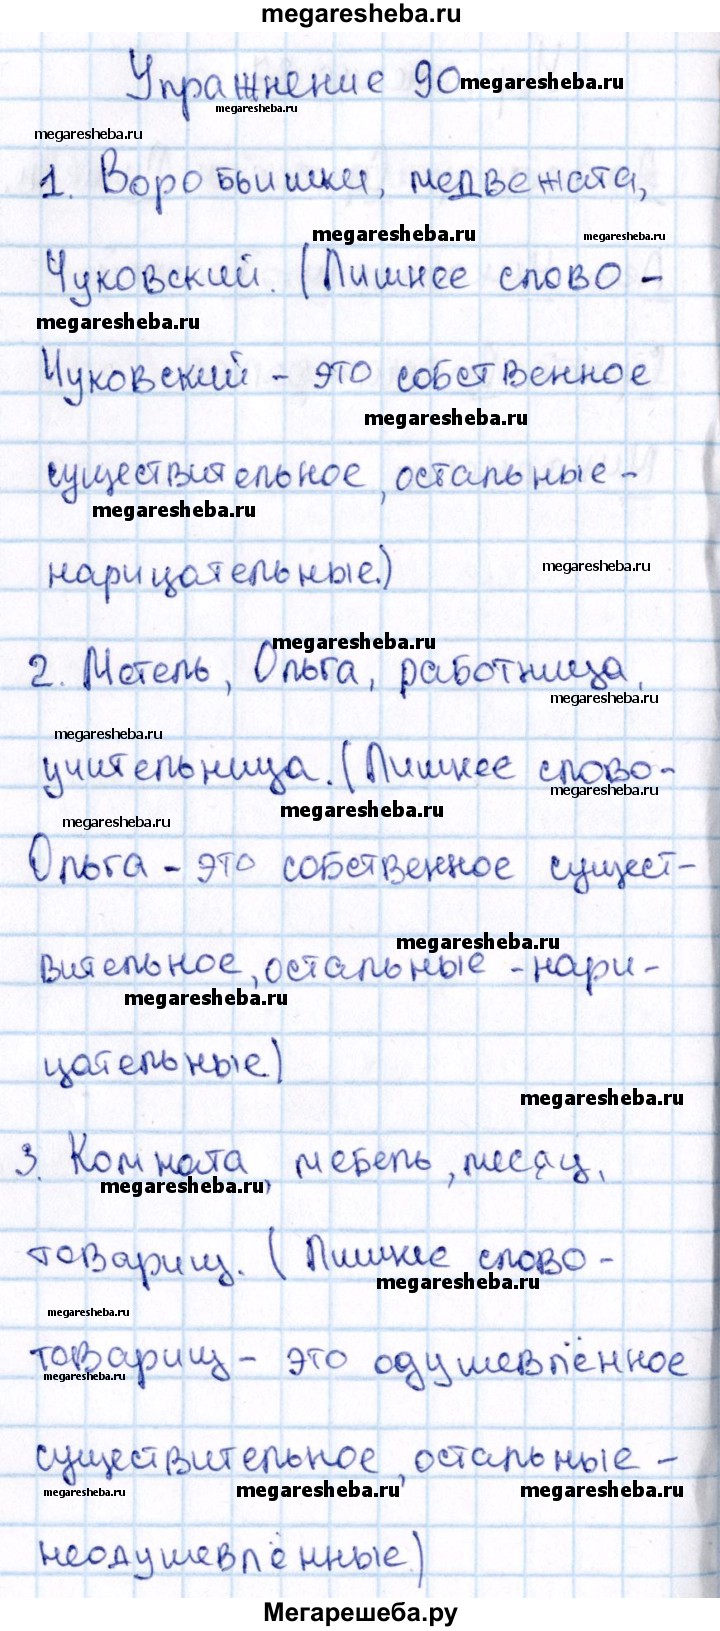 megaresheba.ru
Упражнение 90 megaresheba.ru
megaresheba.ru
megaresheba.ru
1. Воробьишки, медвежата,
megaresheba.ru megaresheba.ru
Чуковский. (Лишнее слово -
megaresheba.ru
Чуковский - это собственное
megaresheba.ru
существительное, остальные -
megaresheba.ru
нарицательные.)
megaresheba.ru
megaresheba.ru
2. Метель, Ольга, работница,
megaresheba.ru
megaresheba.ru
учительница. (Лишнее слово -
megaresheba.ru
megaresheba.ru
megaresheba.ru
Ольга - это собственное сущест-
megaresheba.ru
вительное, остальные - нари-
megaresheba.ru
цательные)
megaresheba.ru
3. Комната, мебель, месяц,
megaresheba.ru
товарищ. (Лишнее слово -
megaresheba.ru
megaresheba.ru
товарищ - это одушевлённое
megaresheba.ru
существительное, остальные -
megaresheba.ru megaresheba.ru megaresheba.ru
неодушевлённые)
Мегарешеба.ру